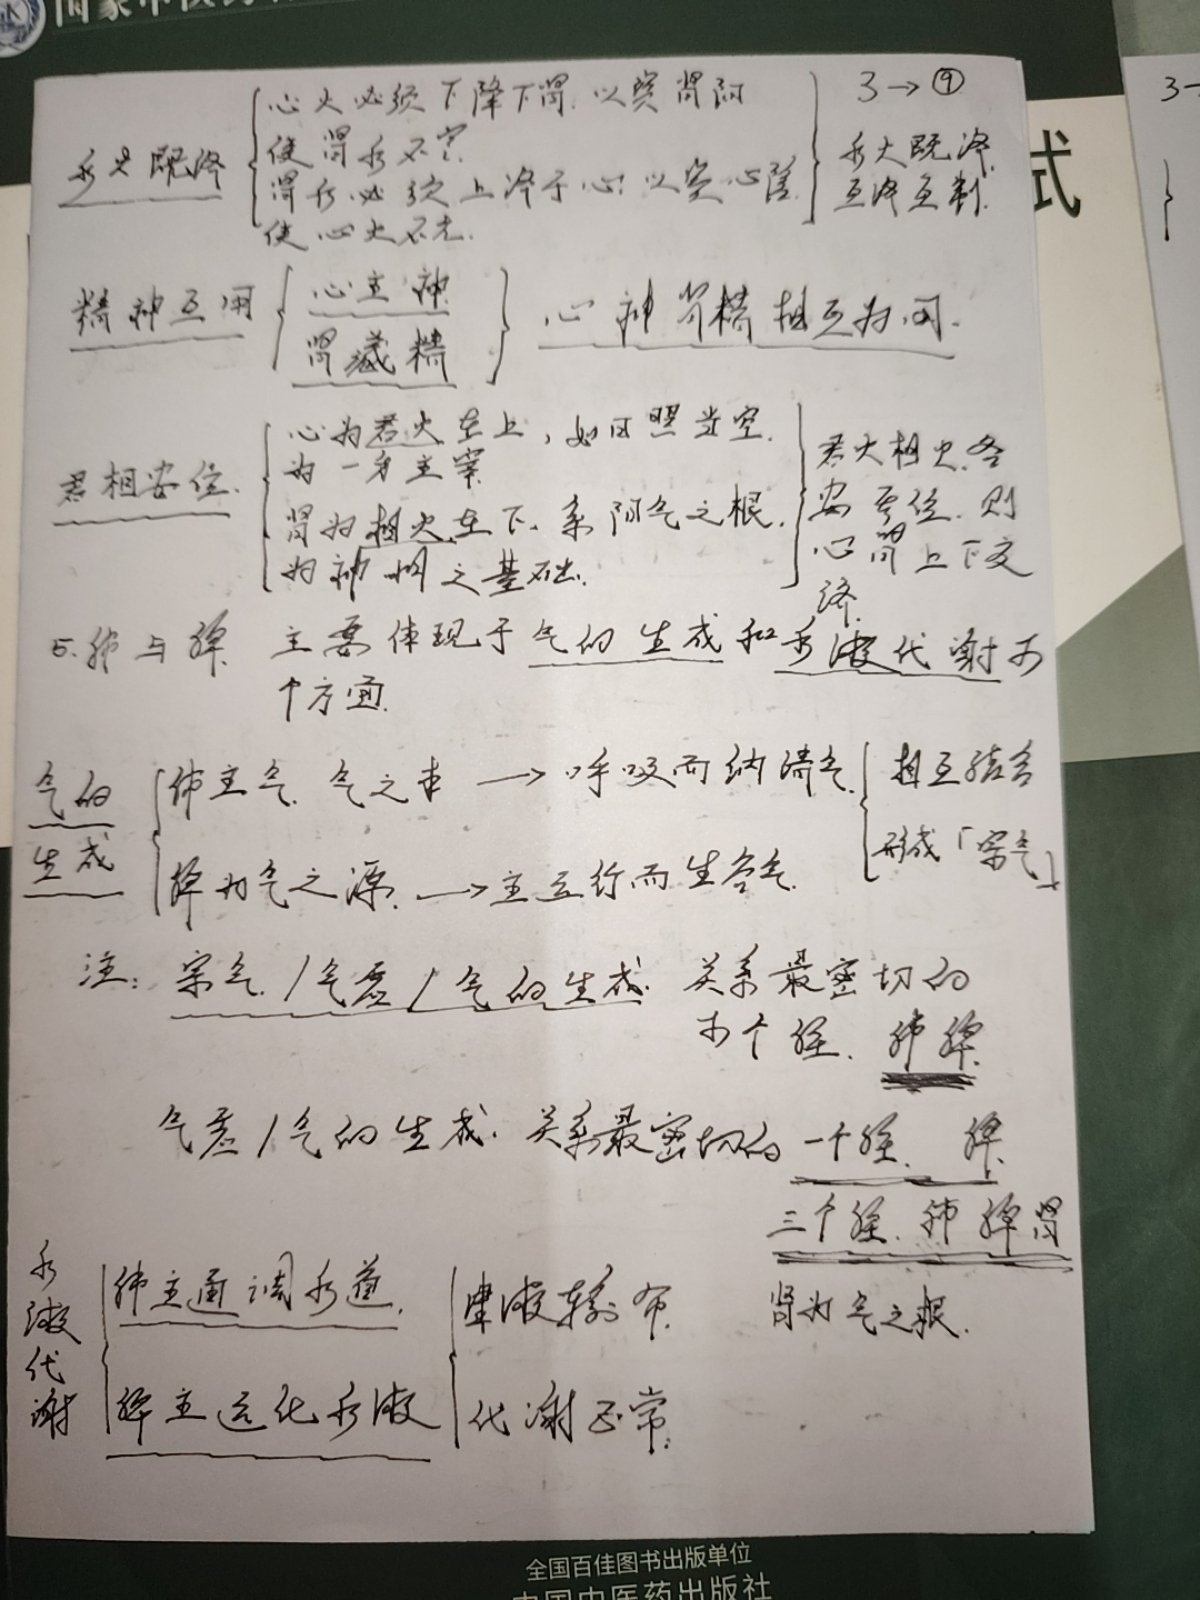 3→⑨
水火既济
心火必须下降下肾,以资肾阳
使肾水不寒.
肾水必须上济于心,以资心阴
使心火不亢.
水火既济
互济互制.
精神互用
心主神
肾藏精
心神肾精相互为用.
君相安位.
心为君火在上,如日照当空.
为一身主宰
肾为相火在下.系阳气之根.
为神明之基础.
君火相火各
安其位.则
心肾上下交
济.
5.肺与脾 主要体现于气的生成和水液代谢两
个方面.
气的
生成
肺主气.气之本 → 呼吸而纳清气
脾为气之源. → 主运行而生谷气.
相互结合
形成「宗气」
注: 宗气/气虚/气的生成. 关系最密切的
两个脏. 肺脾.
气虚/气的生成.关系最密切的一个脏. 脾.
三个脏.肺脾肾
肾为气之根.
水液代谢
肺主通调水道.
脾主运化水液
津液输布.
代谢正常.
式
3→
全国百佳图书出版单位
中国中医药出版社